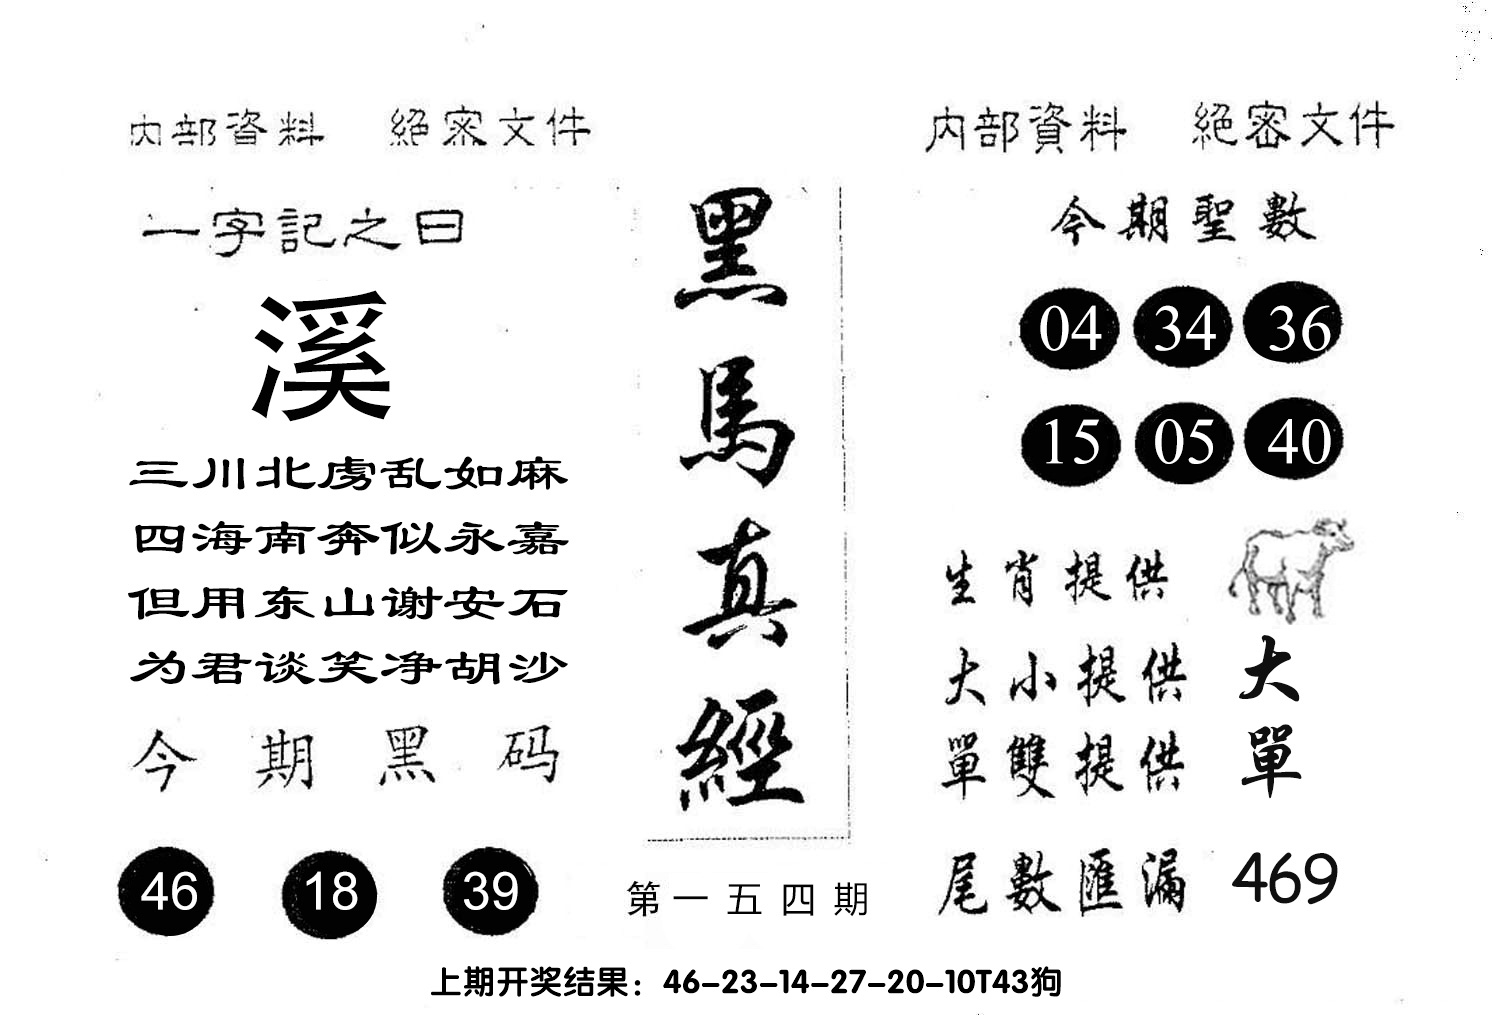 内部資料 絕密文件
一字記之曰
溪
三川北虏乱如麻
四海南奔似永嘉
但用东山谢安石
为君谈笑净胡沙
今期黑码
46 18 39
黑馬真經
第一五四期
内部資料 絕密文件
今期聖數
04 34 36
15 05 40
生肖提供
大小提供 大
單雙提供 單
尾數匯漏 469
上期开奖结果：46-23-14-27-20-10T43狗